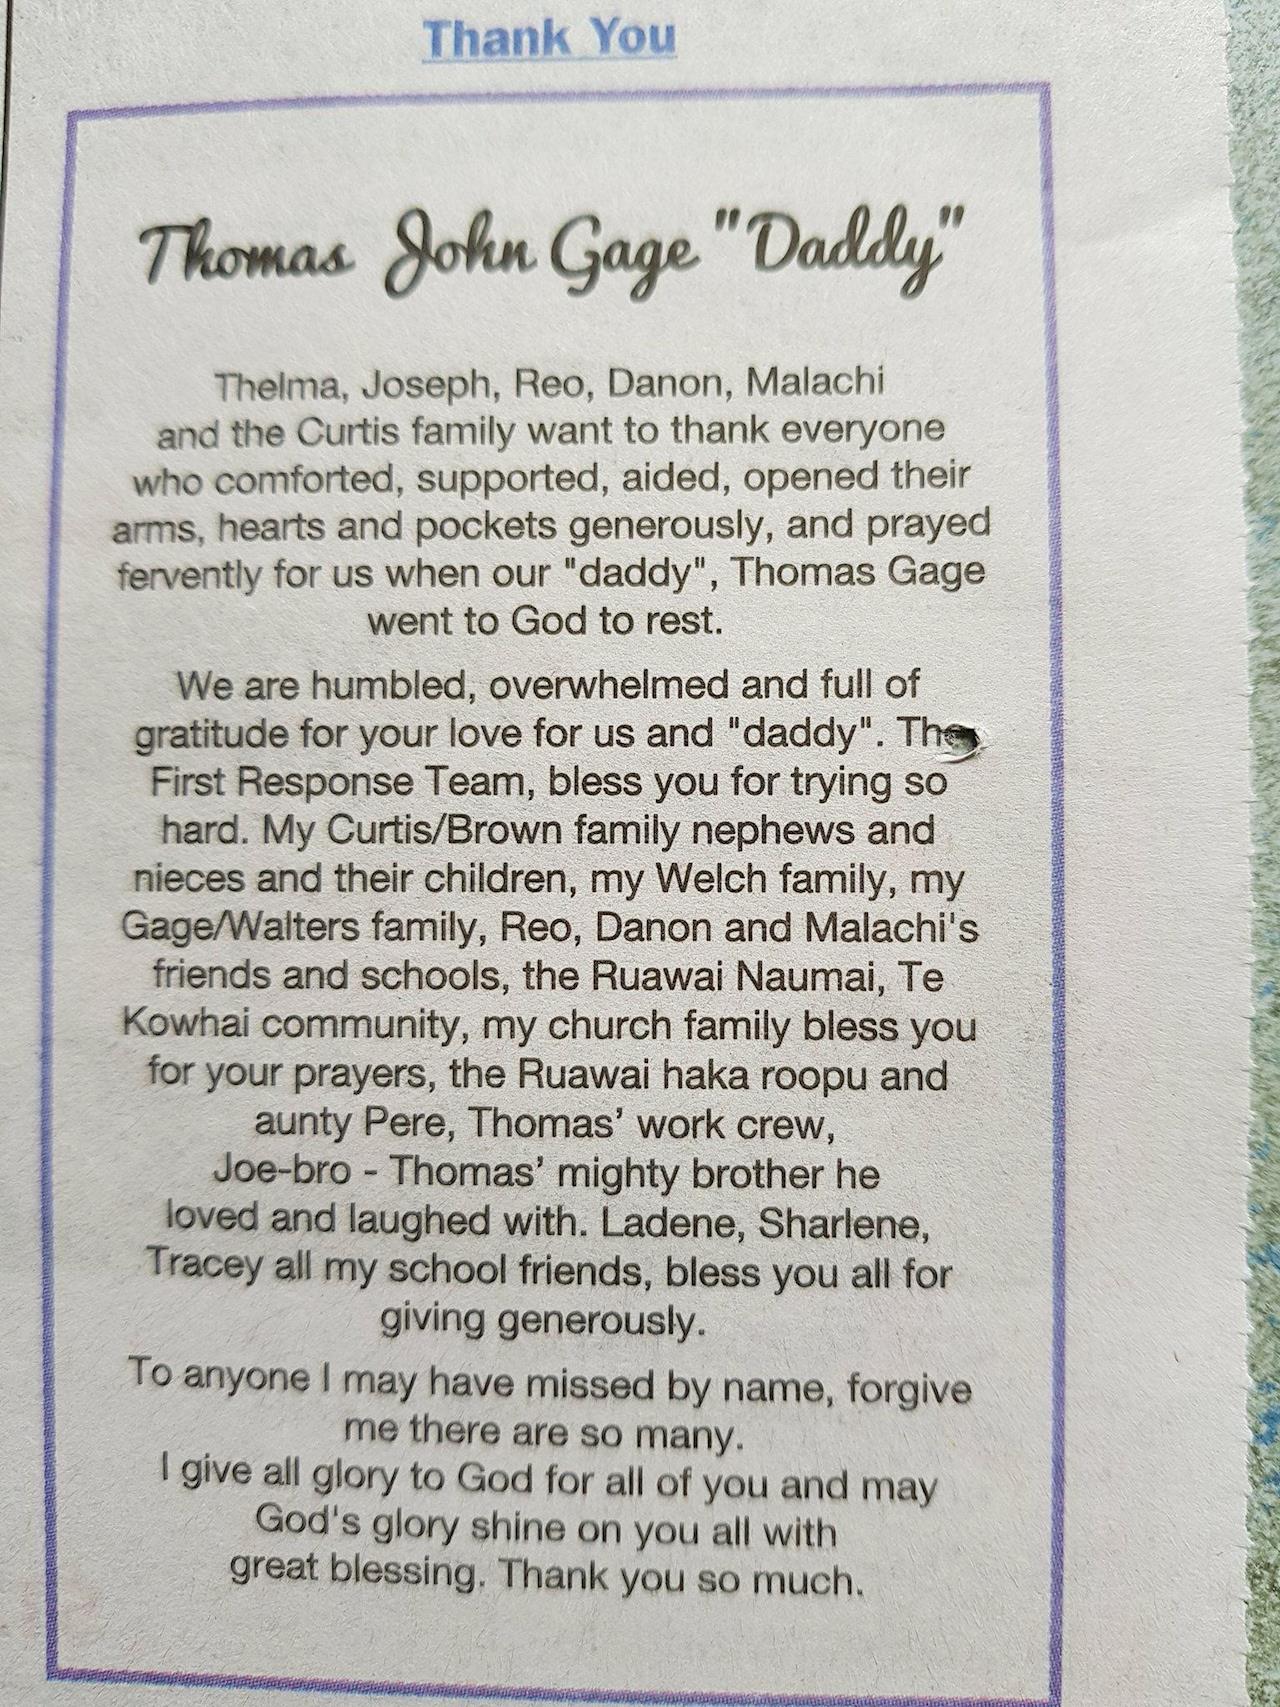 Thank You
Thomas John Gage "Daddy"
Thelma, Joseph, Reo, Danon, Malachi
and the Curtis family want to thank everyone
who comforted, supported, aided, opened their
arms, hearts and pockets generously, and prayed
fervently for us when our "daddy", Thomas Gage
went to God to rest.
We are humbled, overwhelmed and full of
gratitude for your love for us and "daddy". The
First Response Team, bless you for trying so
hard. My Curtis/Brown family nephews and
nieces and their children, my Welch family, my
Gage/Walters family, Reo, Danon and Malachi's
friends and schools, the Ruawai Naumai, Te
Kowhai community, my church family bless you
for your prayers, the Ruawai haka roopu and
aunty Pere, Thomas’ work crew,
Joe-bro - Thomas’ mighty brother he
loved and laughed with. Ladene, Sharlene,
Tracey all my school friends, bless you all for
giving generously.
To anyone I may have missed by name, forgive
me there are so many.
I give all glory to God for all of you and may
God's glory shine on you all with
great blessing. Thank you so much.